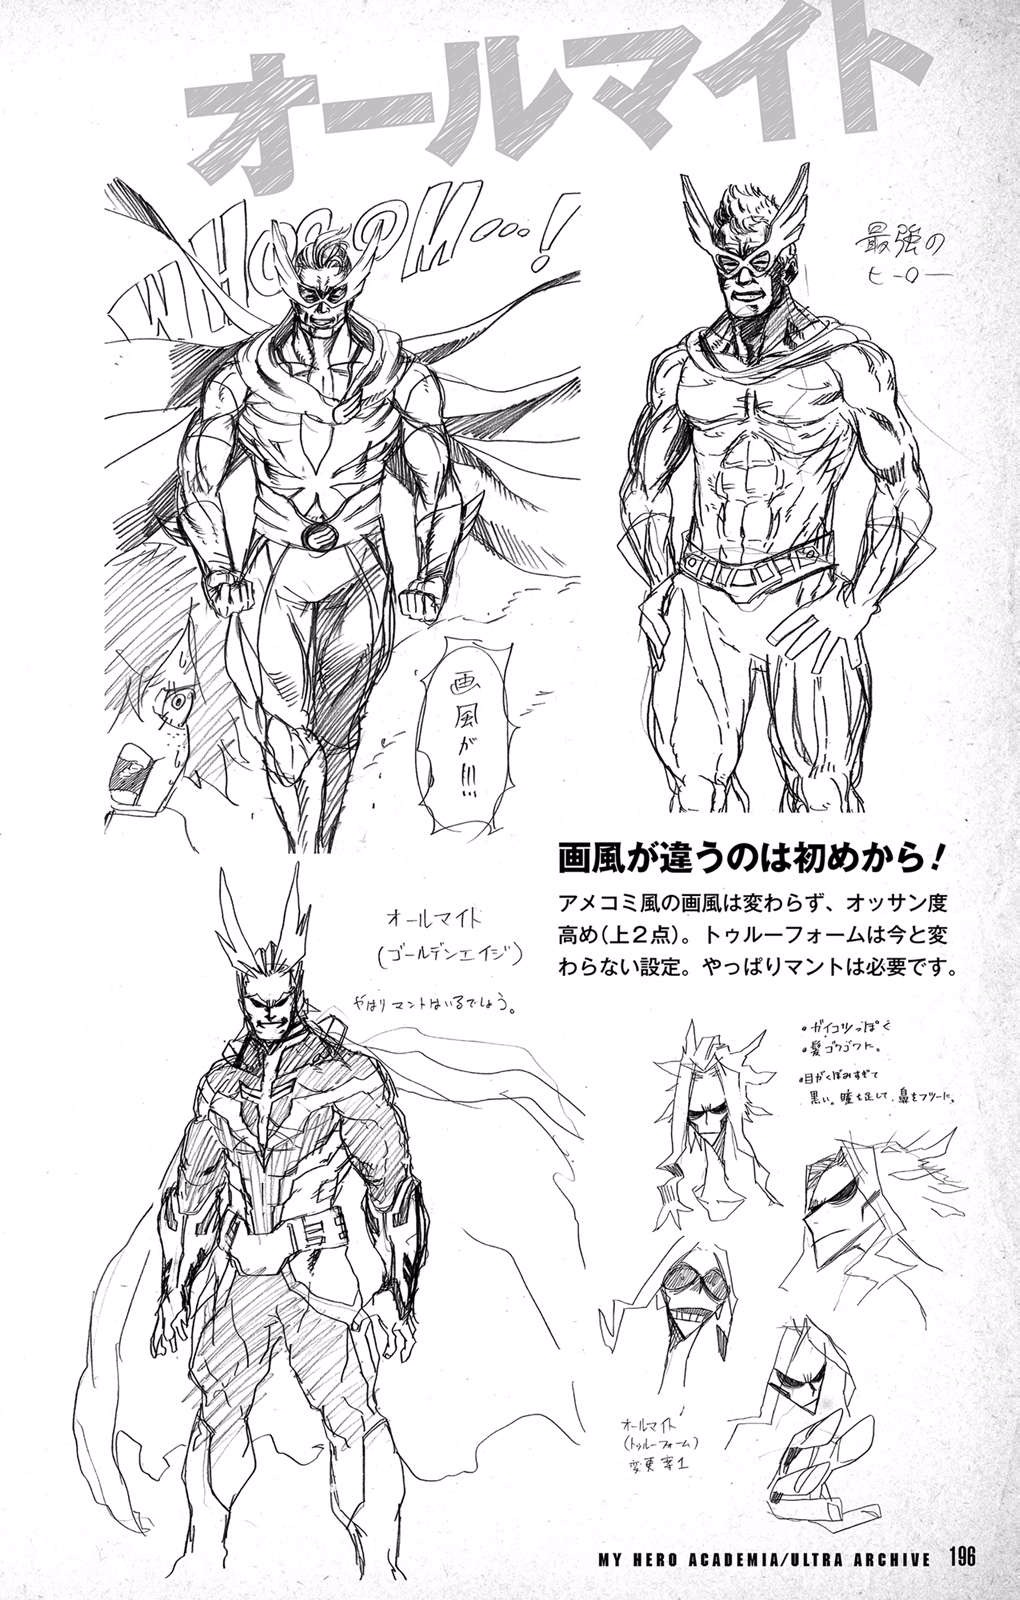 オールマイト
WHOOM...!
最強の
ヒーロー
画風が!!!
画風が違うのは初めから!
アメコミ風の画風は変わらず、オッサン度
高め(上2点)。トゥルーフォームは今と変
わらない設定。やっぱりマントは必要です。
オールマイト
(ゴールデンエイジ)
やはりマントはいるでしょう。
•ガイコツっぽく
•髪ゴワゴワに。
•目がくぼみすぎて
黒い。瞳も足して、鼻もフツーに。
オールマイト
(トゥルーフォーム)
変更案1
MY HERO ACADEMIA/ULTRA ARCHIVE 196